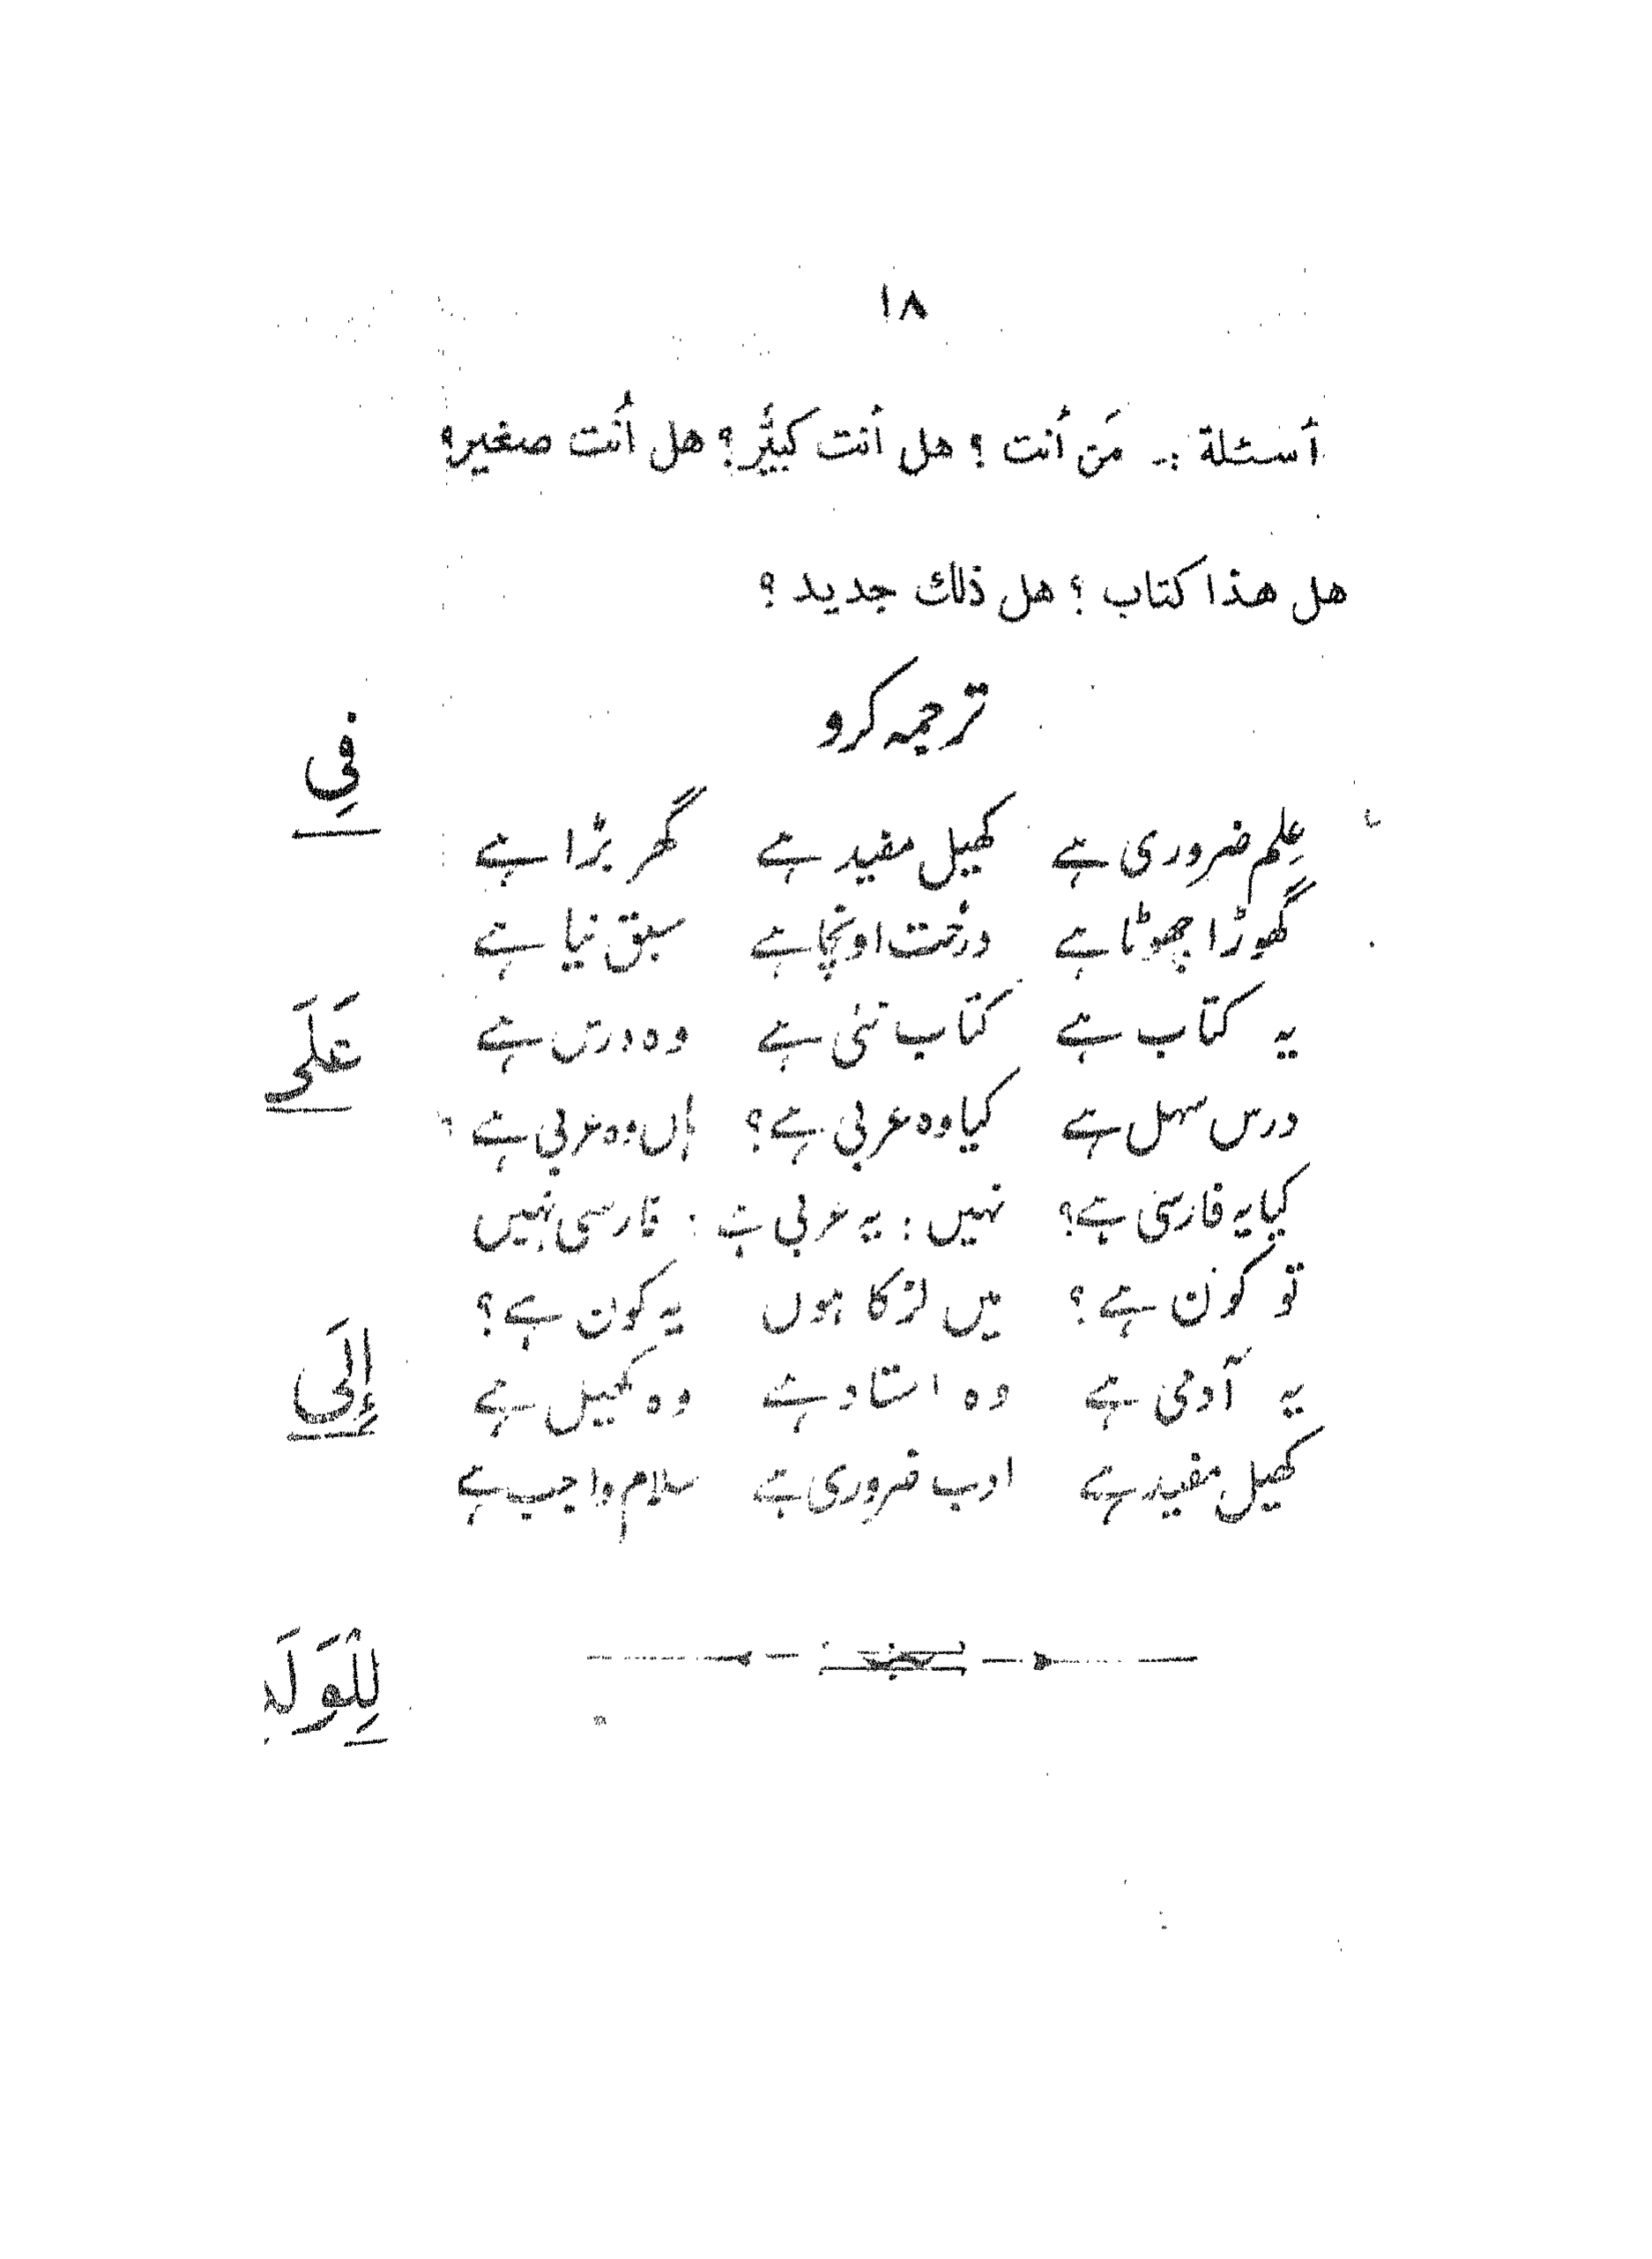 ١٨
أسئلة :- مَن أنت ؟ هل أنت كبيرٌ ؟ هل أنت صغير؟
هل هذا كتاب ؟ هل ذلك جديد ؟
ترجمہ کرو
عِلم ضروری ہے کھیل مفید ہے گھر بڑا ہے
گھوڑا چھوٹا ہے درخت اونچا ہے سبق نیا ہے
یہ کتاب ہے کتاب نئی ہے وہ درس ہے
درس سہل ہے کیا وہ عربی ہے؟ ہاں وہ عربی ہے
کیا یہ فارسی ہے؟ نہیں : یہ عربی ہے : فارسی نہیں
تو کون ہے؟ میں لڑکا ہوں یہ کون ہے؟
یہ آدمی ہے وہ استاد ہے وہ کھیل ہے
کھیل مفید ہے ادب ضروری ہے سلام واجب ہے
فِي
عَلَى
إِلَى